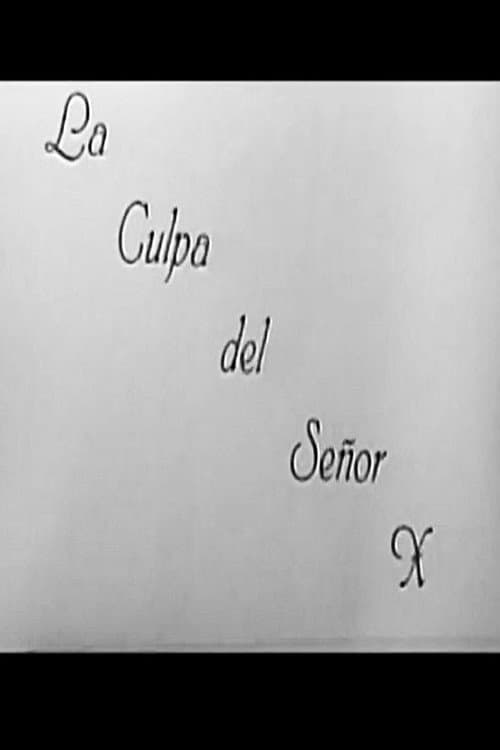 La
Culpa
del
Señor
X